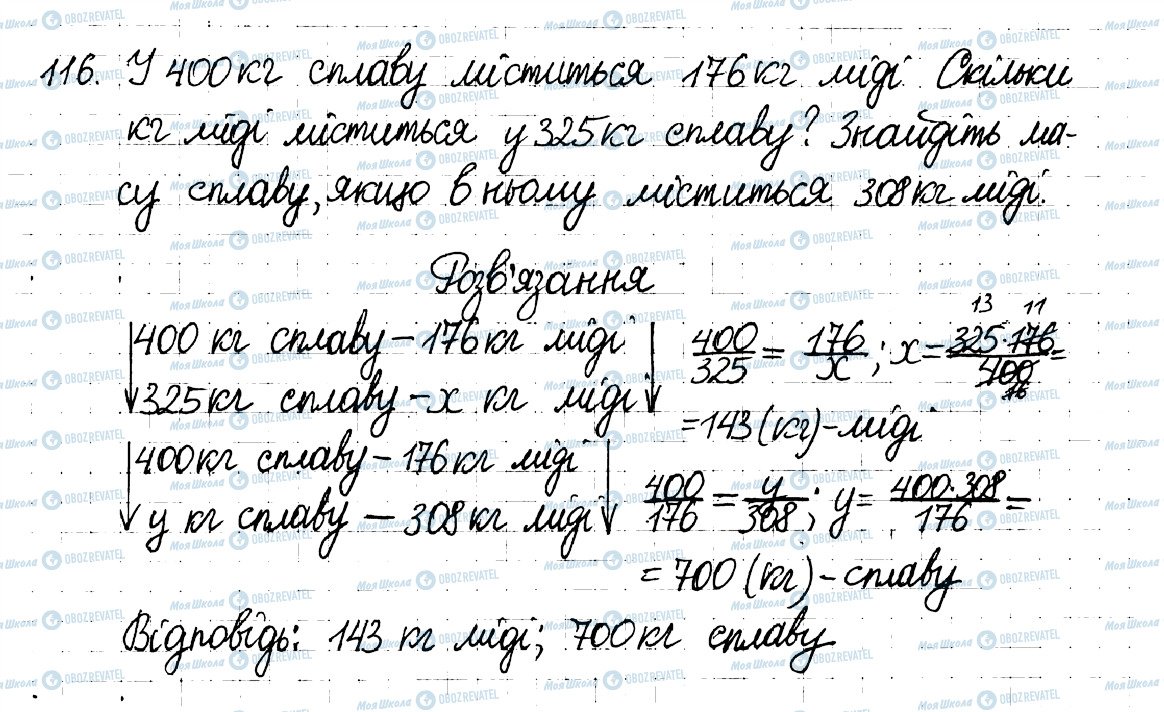 116. У 400 кг сплаву міститься 176 кг міді. Скільки
кг міді міститься у 325 кг сплаву? Знайдіть ма-
су сплаву, якщо в ньому міститься 308 кг міді.
Розв'язання
400 кг сплаву – 176 кг міді
325 кг сплаву – x кг міді
400/325 = 176/x ; x = 325·176/400 =
13 11
16
= 143 (кг) – міді
400 кг сплаву – 176 кг міді
y кг сплаву – 308 кг міді
400/176 = y/308 ; y = 400·308/176 =
= 700 (кг) – сплаву
Відповідь: 143 кг міді; 700 кг сплаву
Моя Школа OBOZREVATEL